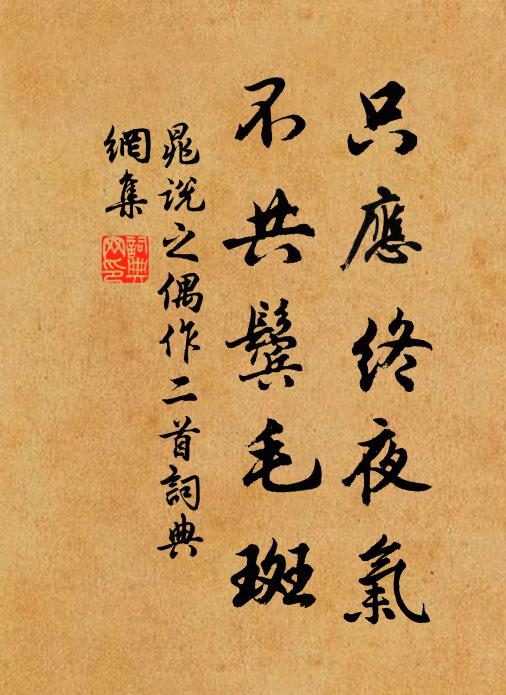 只應終夜氣
不共鬢毛斑
晁說之偶作二首詞典
網集
詞典
网印